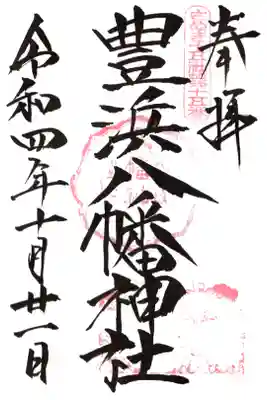 奉拝
豊浜八幡神社
令和四年十月廿一日